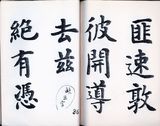 匪速敦
彼開導
去茲
絕有憑
26